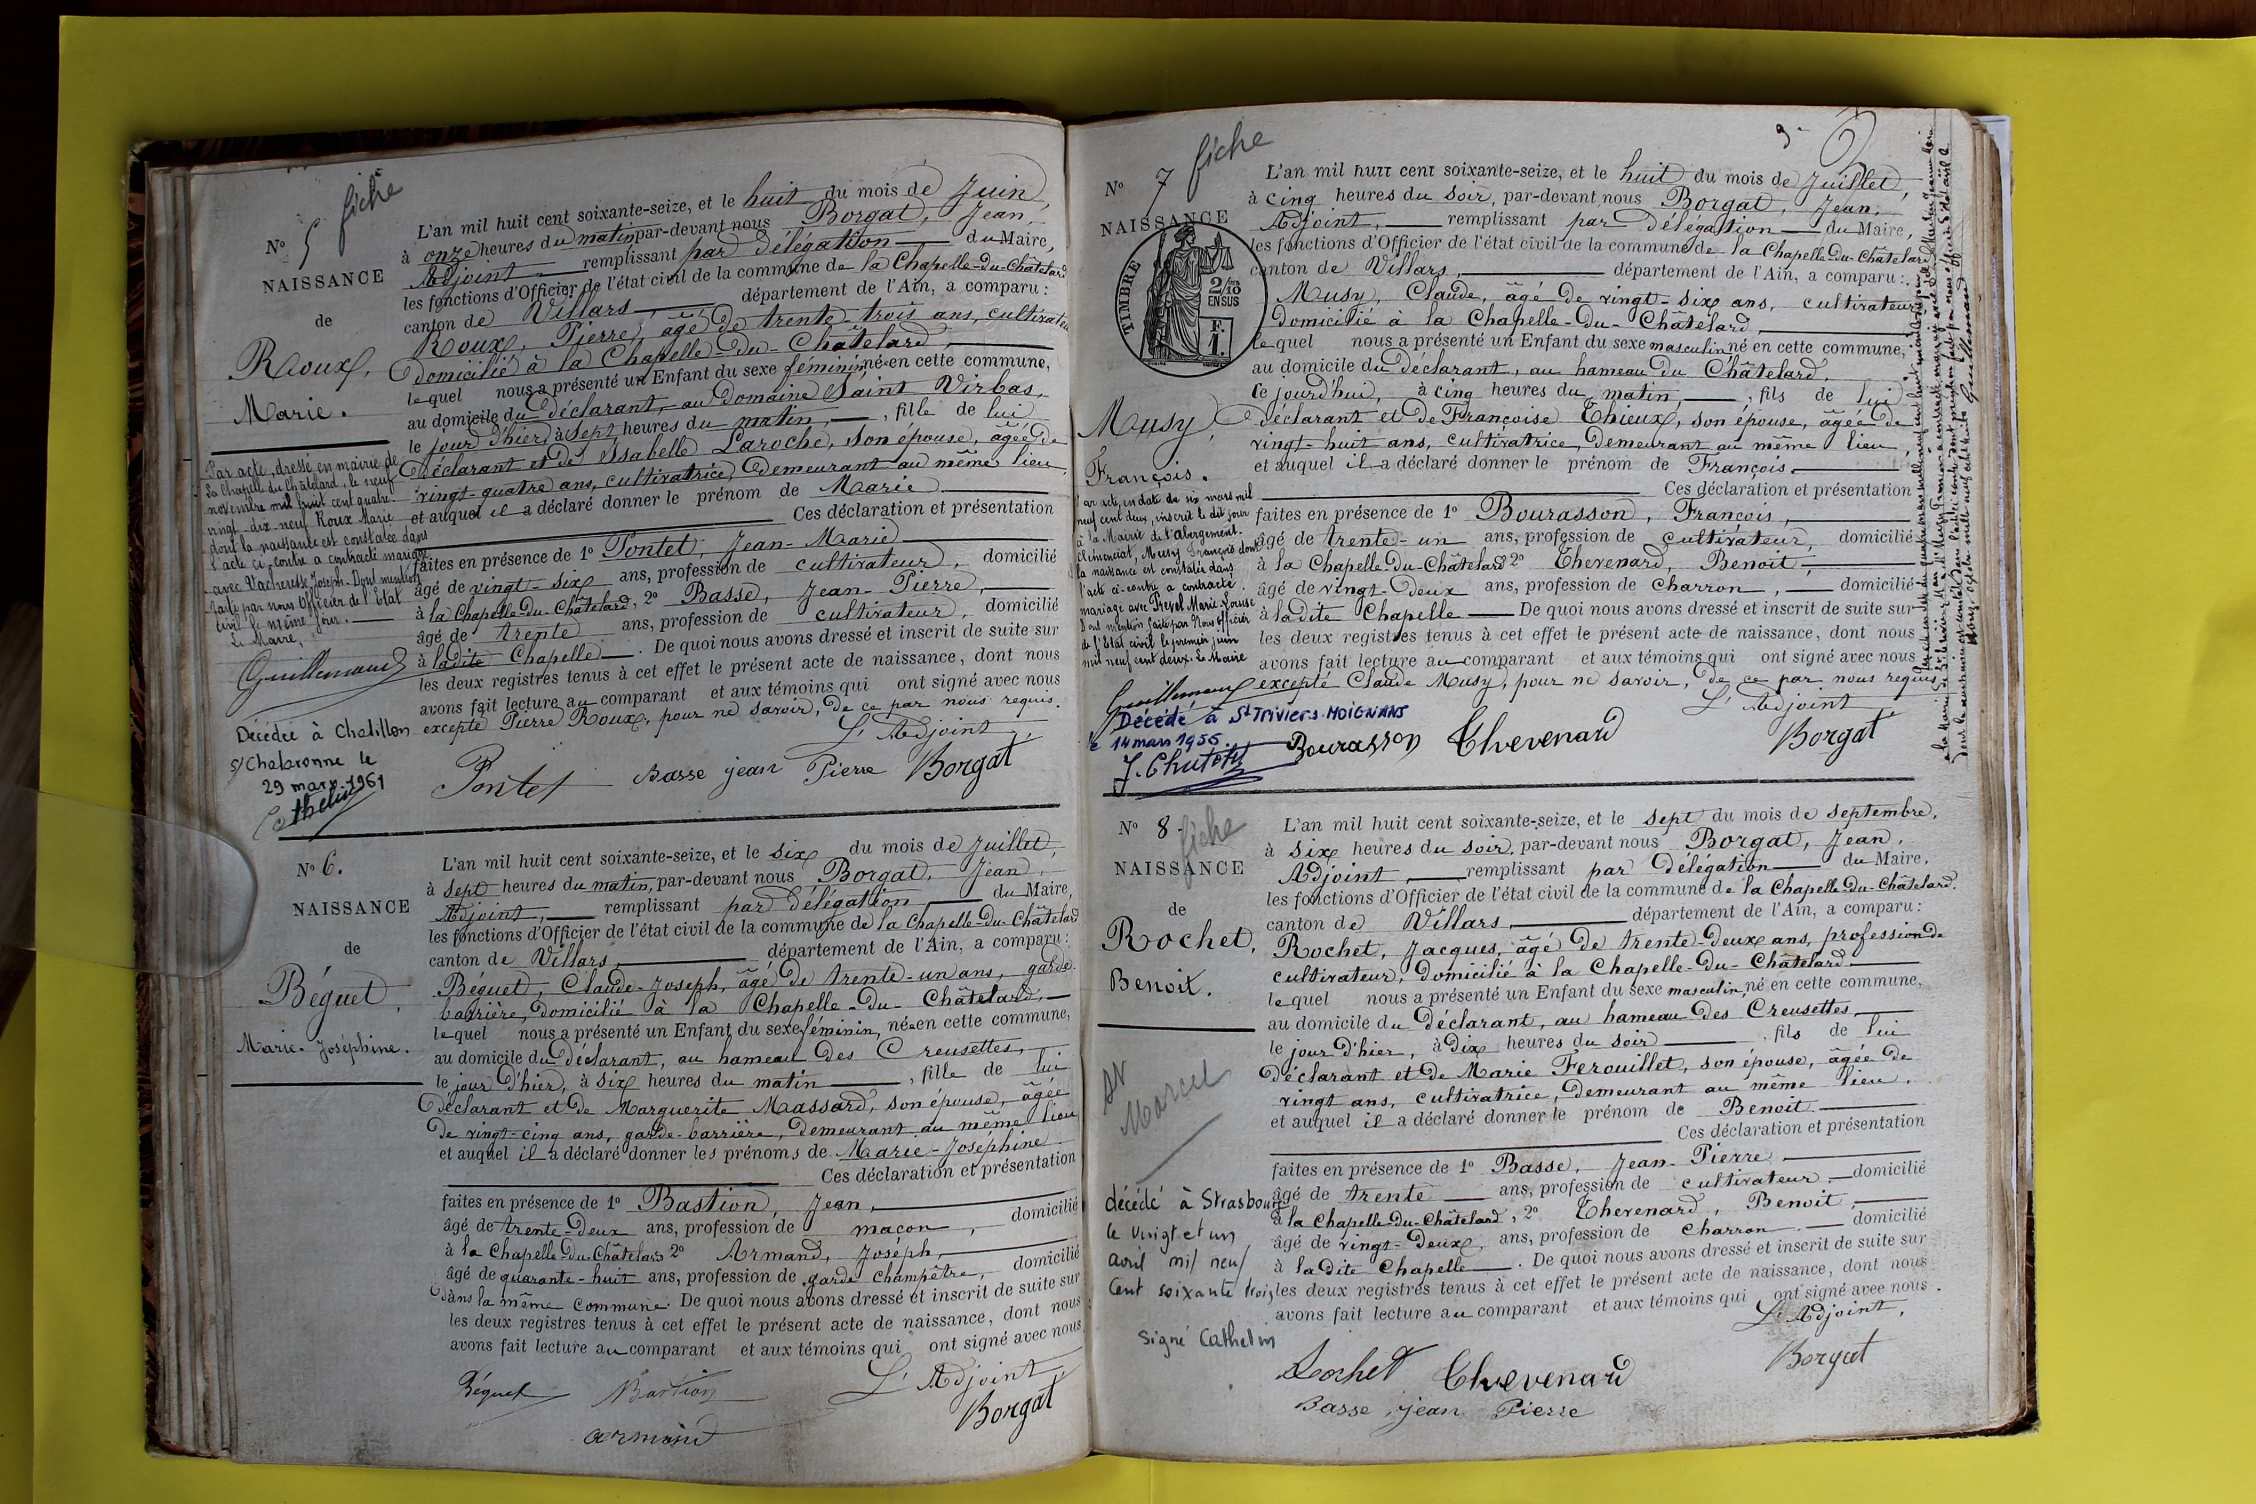 fiche
N° 5
NAISSANCE
de
Roux,
Marie.
Par acte, dressé en mairie de
La Chapelle du Châtelard, le neuf
novembre mil huit cent quatre-
vingt-dix-neuf Roux Marie
dont la naissance est constatée dans
l'acte ci-contre a contracté mariage
avec Vacheresse Joseph. Dont mention
faite par nous Officier de l'Etat
civil le même jour.
Le Maire,
Guillemaud
Décédée à Chatillon
s/ Chalaronne le
29 mars 1961
Cathelin
L'an mil huit cent soixante-seize, et le huit du mois de Juin,
à onze heures du matin par-devant nous Borgat, Jean,
Adjoint remplissant par délégation du Maire,
les fonctions d'Officier de l'état civil de la commune de la Chapelle-du-Châtelard
canton de Villars, département de l'Ain, a comparu :
Roux, Pierre, âgé de trente-trois ans, cultivateur
domicilié à la Chapelle-du-Châtelard,
lequel nous a présenté un Enfant du sexe féminin née en cette commune,
au domicile du déclarant, au domaine Saint Virbas,
le jour d'hier, à sept heures du matin, , fille de lui
déclarant et de Isabelle Laroche, son épouse, âgée de
vingt-quatre ans, cultivatrice, demeurant au même lieu,
et auquel il a déclaré donner le prénom de Marie
Ces déclaration et présentation
faites en présence de 1° Pontet, Jean-Marie
âgé de vingt-six ans, profession de cultivateur, domicilié
à la Chapelle-du-Châtelard, 2° Basse, Jean-Pierre,
âgé de trente ans, profession de cultivateur, domicilié
à ladite Chapelle . De quoi nous avons dressé et inscrit de suite sur
les deux registres tenus à cet effet le présent acte de naissance, dont nous
avons fait lecture au comparant et aux témoins qui ont signé avec nous
excepté Pierre Roux, pour ne savoir, de ce par nous requis.
L'Adjoint,
Pontet Basse jean Pierre Borgat
N° 6.
NAISSANCE
de
Béguet,
Marie-Joséphine.
L'an mil huit cent soixante-seize, et le six du mois de Juillet,
à sept heures du matin, par-devant nous Borgat, Jean,
Adjoint, remplissant par délégation, du Maire,
les fonctions d'Officier de l'état civil de la commune de la Chapelle-du-Châtelard
canton de Villars, département de l'Ain, a comparu :
Béguet, Claude-Joseph, âgé de trente-un ans, garde-
barrière, domicilié à la Chapelle-du-Châtelard,
lequel nous a présenté un Enfant du sexe féminin, née en cette commune,
au domicile du déclarant, au hameau des Creusettes,
le jour d'hier, à six heures du matin , fille de lui
déclarant et de Marguerite Massard, son épouse, âgée
de vingt-cinq ans, garde-barrière, demeurant au même lieu
et auquel il a déclaré donner les prénoms de Marie-Joséphine
Ces déclaration et présentation
faites en présence de 1° Bastion, Jean,
âgé de trente-deux ans, profession de maçon, domicilié
à la Chapelle-du-Châtelard 2° Armand, Joséph,
âgé de quarante-huit ans, profession de garde champêtre, domicilié
dans la même commune. De quoi nous avons dressé et inscrit de suite sur
les deux registres tenus à cet effet le présent acte de naissance, dont nous
avons fait lecture au comparant et aux témoins qui ont signé avec nous
L'Adjoint,
Béguet Bastion Borgat
armand
fiche
N° 7
NAISSANCE
TIMBRE
2/10
EN SUS
F.
1.
Musy,
François.
Par acte, en date du six mars mil
neuf cent deux, inscrit le dit jour
à la Mairie de l'Abergement-
Clémenciat, Musy François dont
la naissance est constatée dans
l'acte ci-contre a contracté
mariage avec Marie-Louise
Dont mention faite par Nous officier
de l'état civil le premier juin
mil neuf cent deux. Le Maire
Guillemaud
Décédé à St TRIVIERS-MOIGNANS
le 14 mars 1956
L'an mil huit cent soixante-seize, et le huit du mois de Juillet,
à cinq heures du soir, par-devant nous Borgat, Jean,
Adjoint, remplissant par délégation du Maire,
les fonctions d'Officier de l'état civil de la commune de la Chapelle-du-Châtelard
canton de Villars, département de l'Ain, a comparu :
Musy, Claude, âgé de vingt-six ans, cultivateur
domicilié à la Chapelle-du-Châtelard,
lequel nous a présenté un Enfant du sexe masculin né en cette commune,
au domicile du déclarant, au hameau du Châtelard,
ce jourd'hui, à cinq heures du matin, , fils de lui
déclarant et de Françoise Thieux, son épouse, âgée de
vingt-huit ans, cultivatrice, demeurant au même lieu,
et auquel il a déclaré donner le prénom de François
Ces déclaration et présentation
faites en présence de 1° Bourasson, François,
âgé de trente-un ans, profession de cultivateur, domicilié
à la Chapelle-du-Châtelard 2° Thevenard, Benoit,
âgé de vingt-deux ans, profession de charron, domicilié
à ladite Chapelle De quoi nous avons dressé et inscrit de suite sur
les deux registres tenus à cet effet le présent acte de naissance, dont nous
avons fait lecture au comparant et aux témoins qui ont signé avec nous
excepté Claude Musy, pour ne savoir, de ce par nous requis
L'Adjoint,
Bourasson Thevenard Borgat
N° 8
fiche
NAISSANCE
de
Rochet,
Benoit.
St
Marcel
décédé à Strasbourg
le vingt et un
avril mil neuf
cent soixante trois
signé Cathelin
L'an mil huit cent soixante-seize, et le sept du mois de septembre,
à six heures du soir, par-devant nous Borgat, Jean,
Adjoint, remplissant par délégation du Maire,
les fonctions d'Officier de l'état civil de la commune de la Chapelle-du-Châtelard.
canton de Villars, département de l'Ain, a comparu :
Rochet, Jacques, âgé de trente-deux ans, profession de
cultivateur, domicilié à la Chapelle-du-Châtelard
lequel nous a présenté un Enfant du sexe masculin, né en cette commune,
au domicile du déclarant, au hameau des Creusettes,
le jour d'hier, à dix heures du soir , fils de lui
déclarant et de Marie Ferouillet, son épouse, âgée de
vingt ans, cultivatrice, demeurant au même lieu,
et auquel il a déclaré donner le prénom de Benoit.
Ces déclaration et présentation
faites en présence de 1° Basse, Jean-Pierre
âgé de trente ans, profession de cultivateur, domicilié
à la Chapelle-du-Châtelard, 2° Thevenard, Benoit,
âgé de vingt-deux, ans, profession de charron. domicilié
à ladite Chapelle . De quoi nous avons dressé et inscrit de suite sur
les deux registres tenus à cet effet le présent acte de naissance, dont nous
avons fait lecture au comparant et aux témoins qui ont signé avec nous.
L'Adjoint,
Rochet Thevenard Borgat
Basse jean Pierre